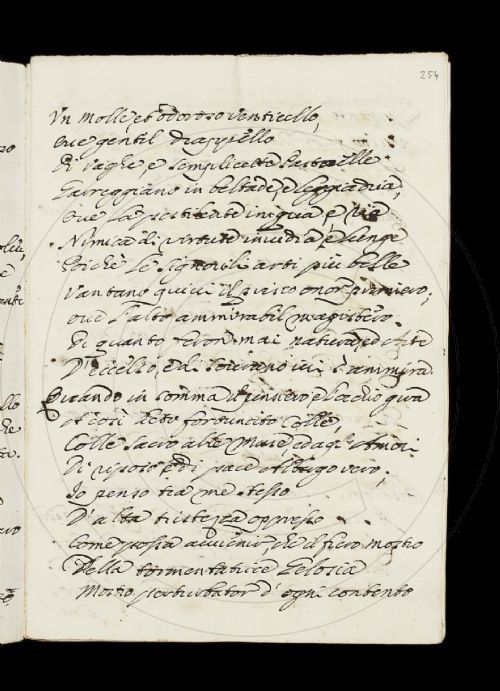 254
Un molle, et odoroso venticello,
Ove gentil drappello
Di vaghe e semplicette Pastorelle
Gareggiano in beltade, e leggiadria,
Ove la pestilente iniqua, e ria
Nimica di virtute invidia è lunge
Poichè le signorili arti più belle
Vantano quivi il giusto onor primiero,
Ove l'alto ammirabil magistero
Di quanto feron mai natura, ed Arte
D'eccelso, e di sovrano ivi s'ammira.
Quando in somma il pensiero, e l'occhio gira
A così lieto fortunato Colle,
Colle sacro alle Muse, ed agli Amori
Di riposo e di pace Albergo vero,
Io penso tra me stesso
D'alta tristezza oppresso
Come possa avvenir, che il fiero mostro
Della tormentatrice Gelosia
Mostro perturbator d'ogni contento